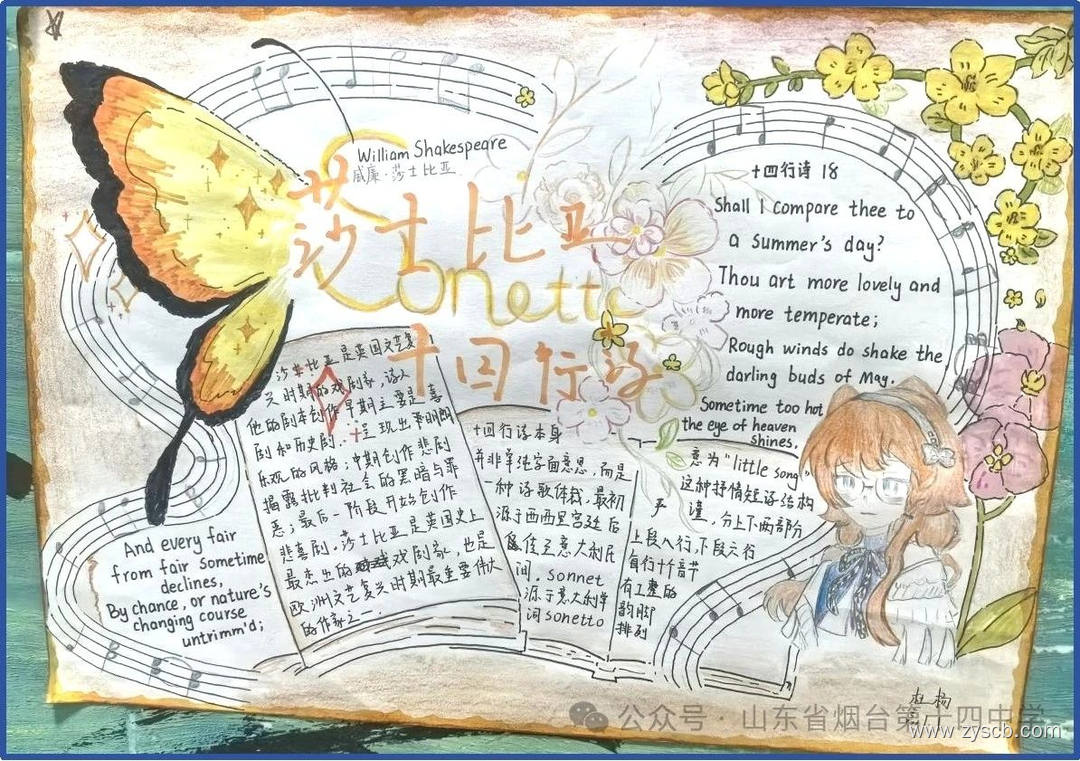 William Shakespeare
威廉·莎士比亚
莎士比亚
Sonetto
十四行诗
十四行诗 18
Shall I compare thee to
a summer's day?
Thou art more lovely and
more temperate;
Rough winds do shake the
darling buds of May.
Sometime too hot
the eye of heaven
shines,
And every fair
from fair sometime
declines,
By chance, or nature's
changing course
untrimm'd;
莎士比亚是英国文艺复
兴时期的戏剧家，诗人
他的剧本创作早期主要是喜
剧和历史剧，呈现出明朗
乐观的风格；中期创作悲剧
揭露批判社会的黑暗与罪
恶；最后一阶段开始创作
悲喜剧。莎士比亚是英国史上
最杰出的戏剧家，也是
欧洲文艺复兴时期最重要伟大
的作家之一.
十四行诗本身
并非单纯字面意思，而是
一种诗歌体裁，最初
源于西西里宫廷后
流传至意大利民
间. sonnet
源于意大利单
词 sonetto
意为"little song"
这种抒情短诗结构
严谨，分上下两部分
上段八行，下段六行
每行十个音节
有工整的
韵脚
排列
公众号·山东省烟台第十四中学
www.zyscb.com